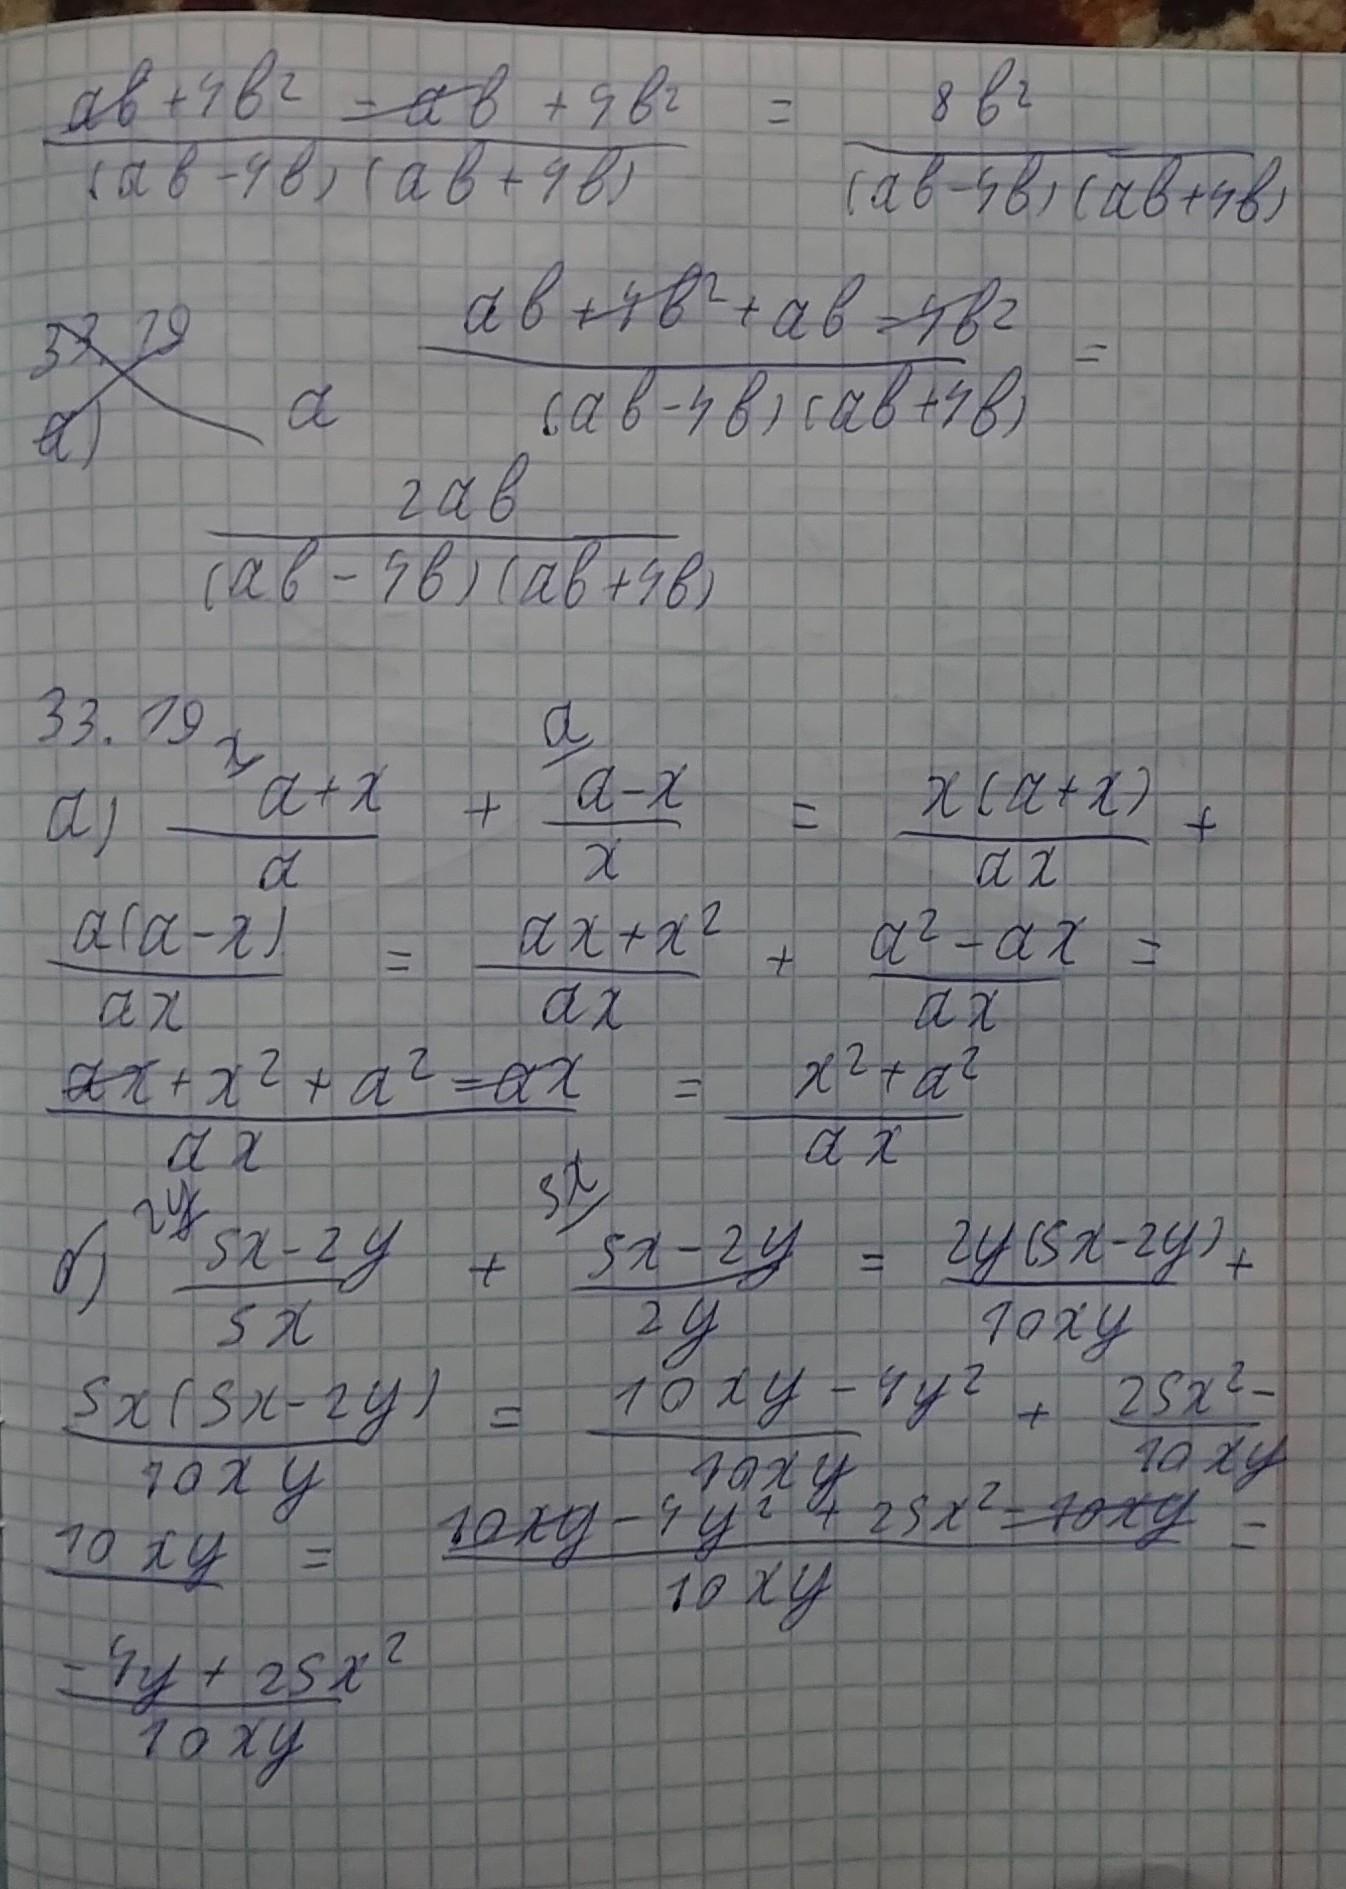 ab + 4b² - ab + 4b² / (ab - 4b)(ab + 4b) = 8b² / (ab - 4b)(ab + 4b)
33.19
ab + 4b² + ab - 4b² / (ab - 4b)(ab + 4b) =
а) a
2ab / (ab - 4b)(ab + 4b)
33.19
а) x a+x / a + a a-x / x = x(a+x) / ax +
a(a-x) / ax = ax + x² / ax + a² - ax / ax =
ax + x² + a² - ax / ax = x² + a² / ax
б) 2y 5x - 2y / 5x + 5x 5x - 2y / 2y = 2y(5x - 2y) / 10xy +
5x(5x - 2y) / 10xy = 10xy - 4y² / 10xy + 25x² - / 10xy
10xy = 10xy - 4y² + 25x² - 10xy / 10xy =
-4y + 25x² / 10xy